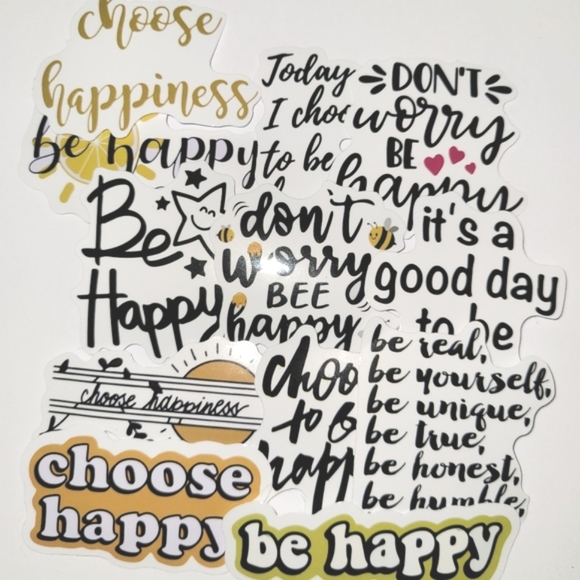 choose
happiness
be happy
Today
I cho
to be
DON'T
worry
BE
happy
Be
Happy
don't
worry
BEE
happy
it's a
good day
to be
choose happiness
choo
to b
happ
be real,
be yourself,
be unique,
be true,
be honest,
be humble,
choose
happy
be happy